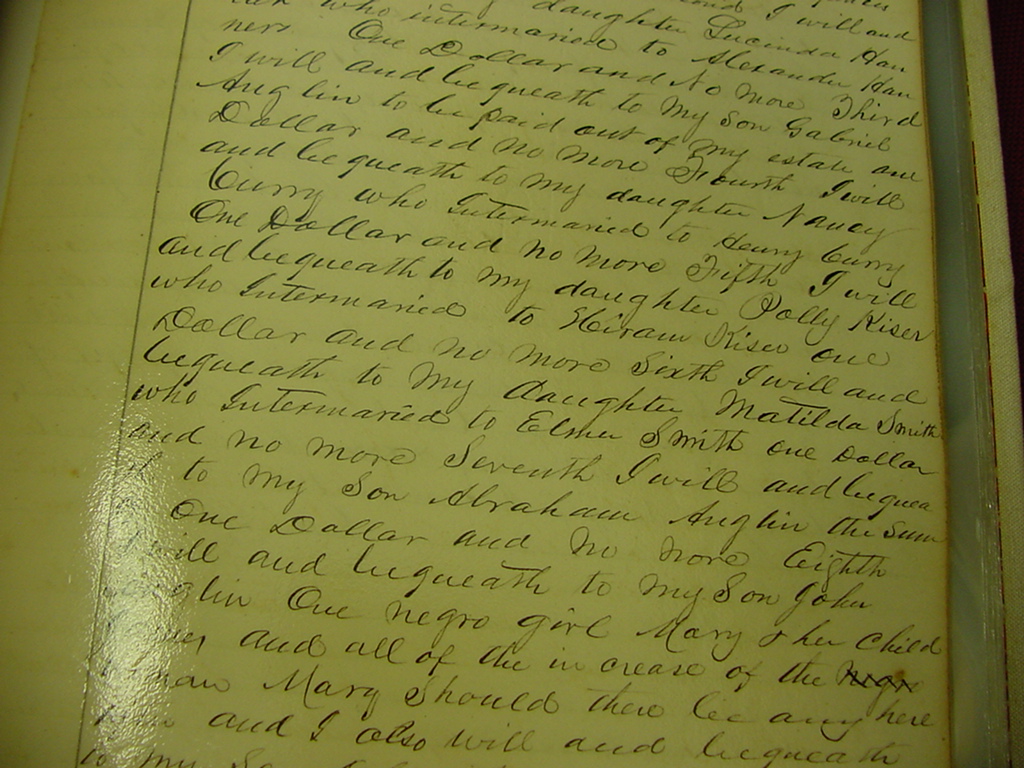 daughter Lucinda Han
who intermaried to Alexander Han
ners One Dollar and No More Third
I will and bequeath to My Son Gabriel
Anglin to be paid out of my estate one
Dollar and no more Fourth I will
and bequeath to My daughter Nancy
Curry who Intermaried to Henry Curry
One Dollar and no More Fifth I will
and bequeath to My daughter Polly Kiser
who Intermaried to Hiram Kiser one
Dollar and No More Sixth I will and
bequeath to My daughter Matilda Smith
who Intermaried to Elihu Smith one Dollar
and No More Seventh I will and bequea
th to My Son Abraham Anglin the Sum
One Dollar and No More Eighth
I will and bequeath to My Son John
Anglin One Negro girl Mary & her Child
and all of the increase of the
Mary Should there be any here
and I also will and bequeath
to My